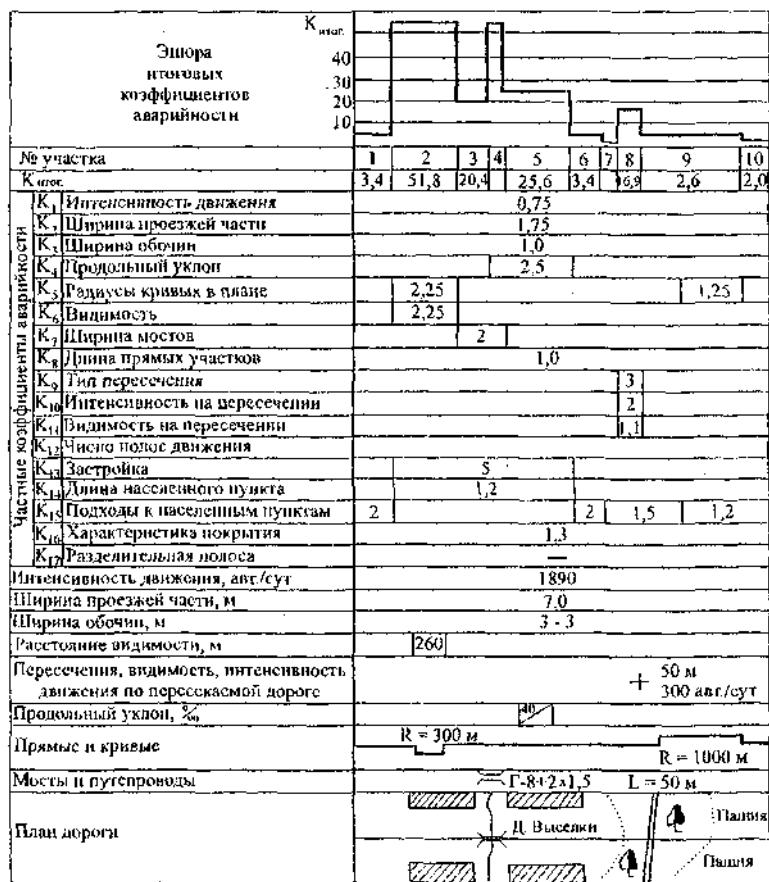 K итог.
Эпюра
итоговых
коэффициентов
аварийности
40
30
20
10
№ участка 1 2 3 4 5 6 7 8 9 10
K итог. 3,4 51,8 20,4 25,6 3,4 16,9 2,6 2,0
Частные коэффициенты аварийности
K1 Интенсивность движения 0,75
K2 Ширина проезжей части 1,75
K3 Ширина обочин 1,0
K4 Продольный уклон 2,5
K5 Радиусы кривых в плане 2,25 1,25
K6 Видимость 2,25
K7 Ширина мостов 2
K8 Длина прямых участков 1,0
K9 Тип пересечения 3
K10 Интенсивность на пересечении 2
K11 Видимость на пересечении 1,1
K12 Число полос движения
K13 Застройка 5
K14 Длина населенного пункта 1,2
K15 Подходы к населенным пунктам 2 2 1,5 1,2
K16 Характеристика покрытия 1,3
K17 Разделительная полоса —
Интенсивность движения, авт./сут 1890
Ширина проезжей части, м 7,0
Ширина обочин, м 3 - 3
Расстояние видимости, м 260
Пересечения, видимость, интенсивность
движения по пересекаемой дороге
50 м
300 авт./сут
Продольный уклон, ‰ 40
Прямые и кривые
R = 300 м
R = 1000 м
Мосты и путепроводы Г-8+2x1,5 L = 50 м
План дороги
Д. Выселки
Пашня
Пашня